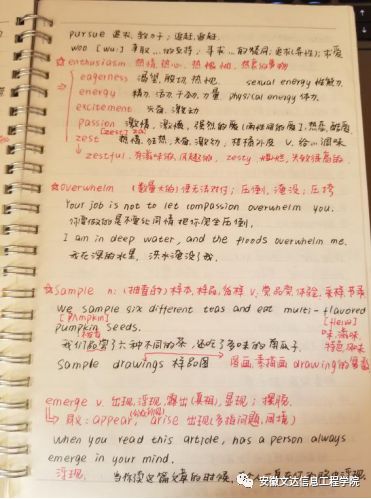 pursue 追求, 致力于; 追赶, 追赶.
woo [wu:] 争取…的支持; 寻求…的赞同; 追求(异性); 求爱
☆enthusiasm 热情, 热心, 热衷的事物
eagerness 渴望, 殷切, 热忱. sexual energy 性魅力
energy 精力, 活力, 干劲, 力量 physical energy 体力
excitement 兴奋, 激动
passion 激情, 强烈的爱
[zest]
zest 热情, 狂热, 兴奋, 激动, 柑橘外皮 v. 给…调味
→ zestful. zesty
☆overwhelm (数量大的) 使无法对付; 压倒, 淹没; 压垮
Your job is not to let compassion overwhelm you.
你要做的是不要让同情把你完全压倒.
I am in deep water, and the floods overwhelm me.
我在深的水里, 洪水淹没了我.
☆sample n: (抽查的) 样本, 样品, 货样 v. 体验, 采样
We sample six different teas and eat multi-flavored
pumpkin seeds. [pʌmpkin]
我们品尝了六种不同的茶, 还吃了多味的南瓜子.
sample drawings 样品图
emerge v. 出现, 浮现, 露出(真相), 显现; 摆脱
近义: appear, arise 出现(多指问题, 困境)
When you read this article, has a person always
emerge in your mind.
浮现. 当你读这篇文章的时候
安徽文达信息工程学院